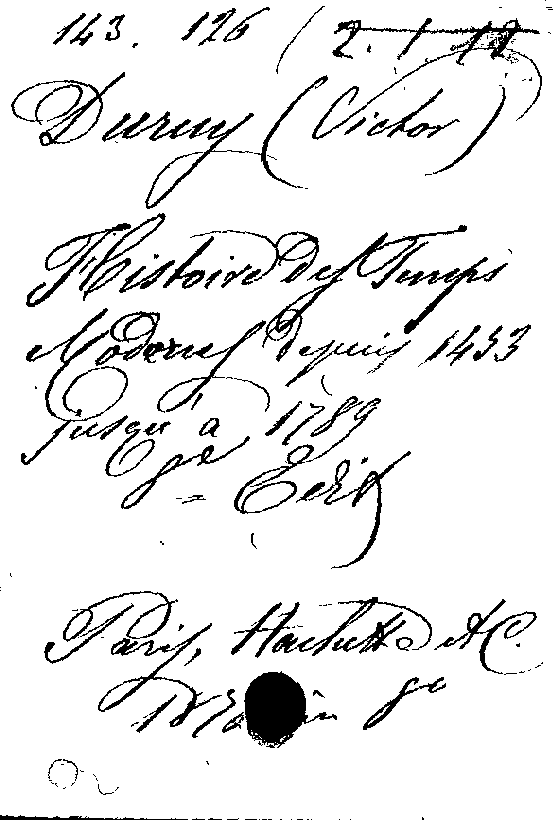 143. 126 / 2. 1. 12
Duruy (Victor)
Histoire des Temps
Modernes depuis 1453
jusqu'à 1789
9e Edit
Paris, Hachette et C.
in 8o